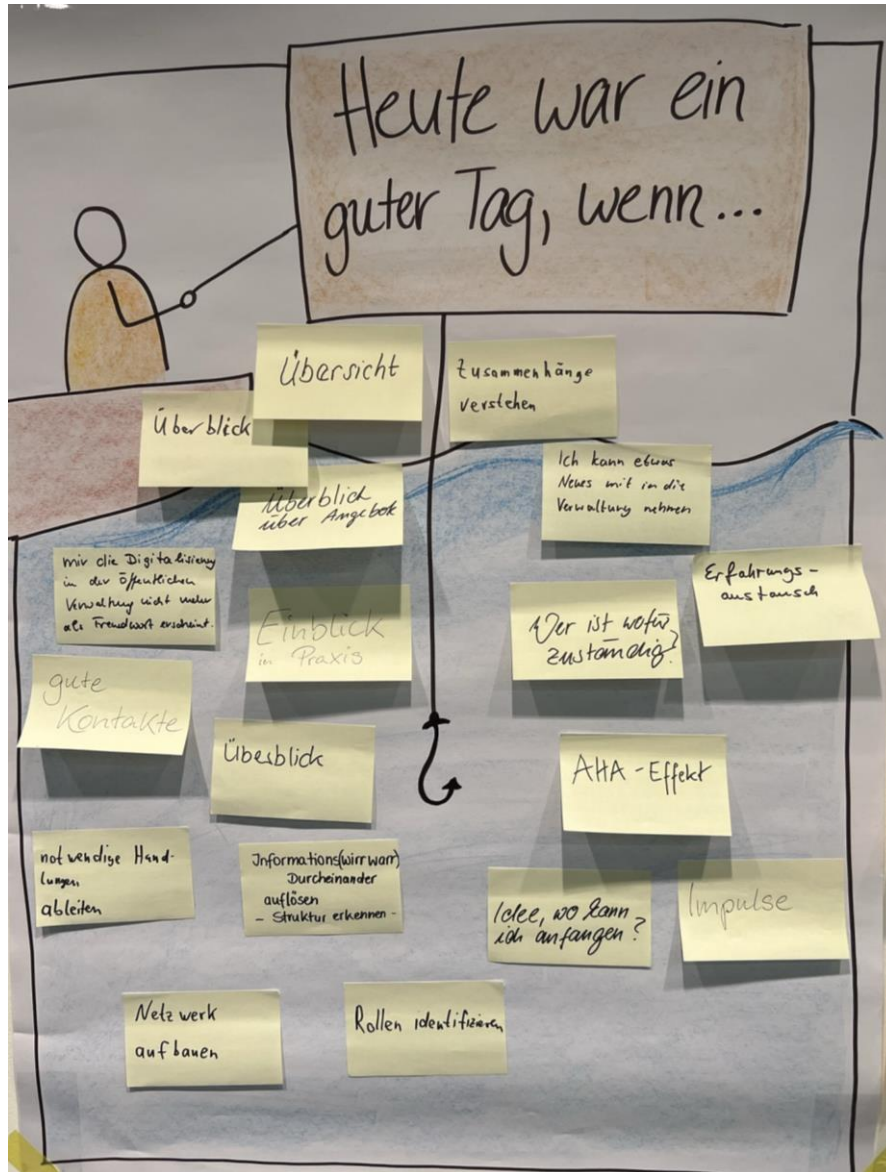 Heute war ein
guter Tag, wenn...
Übersicht
Zusammenhänge
verstehen
Überblick
Überblick
über Angebote
Ich kann etwas
Neues mit in die
Verwaltung nehmen
mir die Digitalisierung
in der öffentlichen
Verwaltung nicht mehr
als Fremdwort erscheint.
Einblick
in Praxis
Wer ist wofür
zuständig?
Erfahrungs-
austausch
gute
Kontakte
Überblick
AHA-Effekt
notwendige Hand-
lungen
ableiten
Informations(wirrwarr)
Durcheinander
auflösen
- Struktur erkennen -
Idee, wo kann
ich anfangen?
Impulse
Netzwerk
aufbauen
Rollen identifizieren